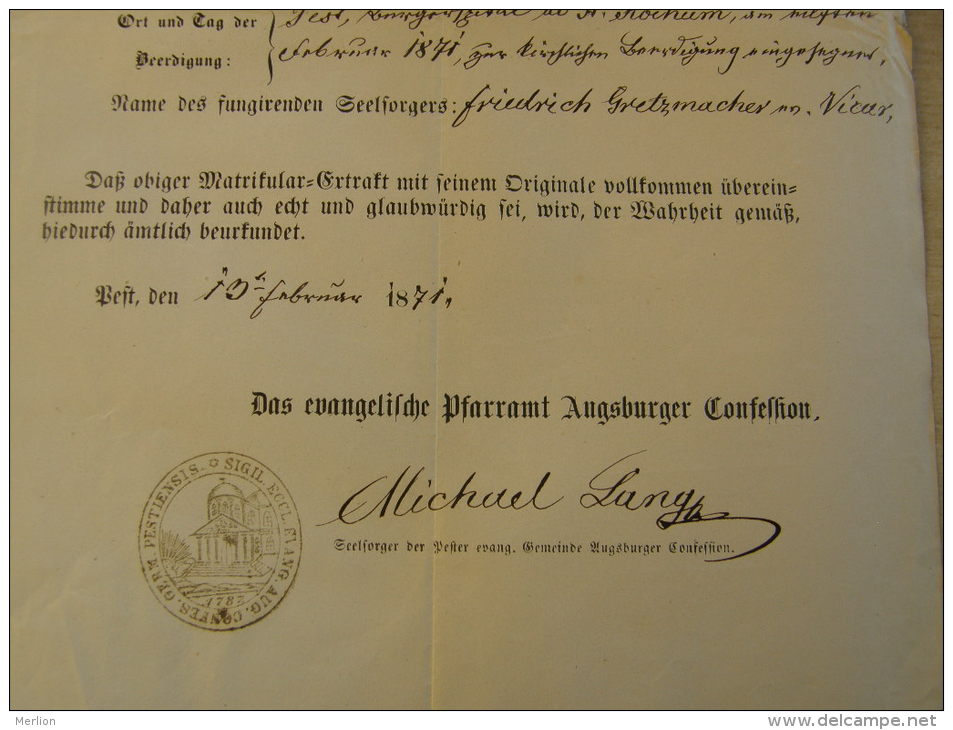 Ort und Tag der
Beerdigung:
Pest, Bürgerspital ad St. Rochum, am elften
Februar 1871, zur kirchlichen Beerdigung eingesegnet,
Name des fungirenden Seelsorgers: Friedrich Gretzmacher ev. Vicar,
Daß obiger Matrikular-Extrakt mit seinem Originale vollkommen überein-
stimme und daher auch echt und glaubwürdig sei, wird, der Wahrheit gemäß,
hiedurch ämtlich beurkundet.
Pest, den 13t Februar 1871.
Das evangelische Pfarramt Augsburger Confession.
Michael Lang
Seelsorger der Pester evang. Gemeinde Augsburger Confession.
SIGIL. ECCL. EVANG. AUG. CONFES. GERM. PESTIENSIS.
Merlion
www.delcampe.net